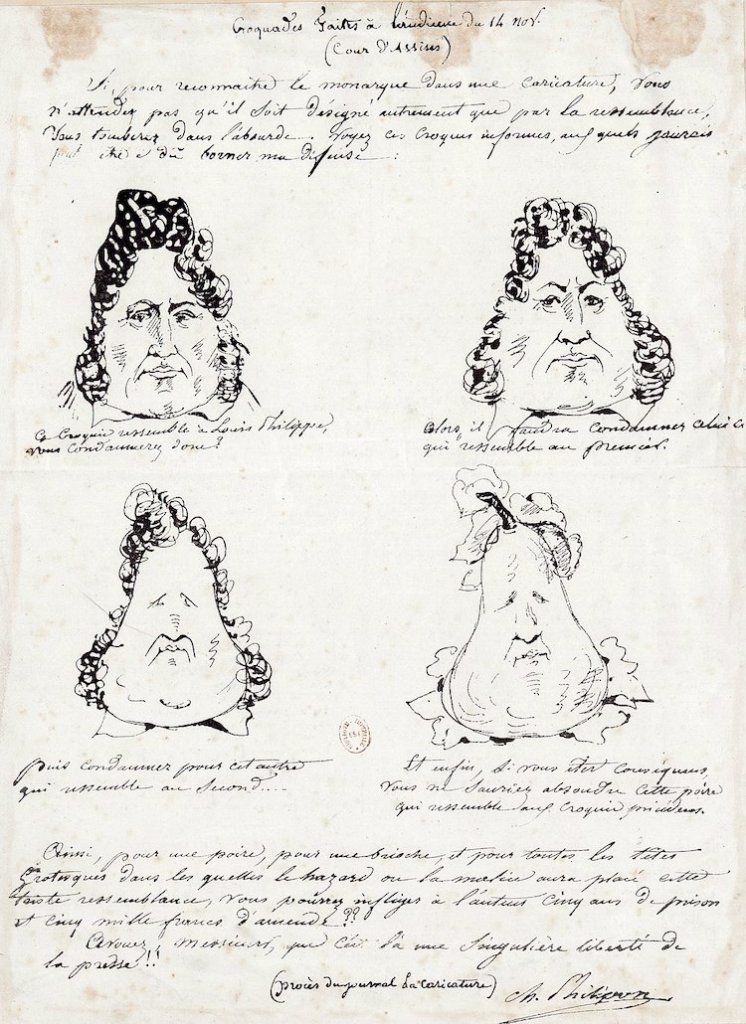 Croquades faites à l'audience du 14 nov.
(Cour d'Assises)
Si, pour reconnaitre le monarque dans une caricature, vous
n'attendez pas qu'il soit désigné autrement que par la ressemblance,
vous tomberez dans l'absurde. Voyez ces croquis informes, aux quels j'aurais
peut être dû borner ma défense :
Ce croquis ressemble à Louis Philippe,
vous condamnerez donc ?
Alors il faudra condamner celui-ci
qui ressemble au premier.
Puis condamner pour cet autre
qui ressemble au second....
Et enfin, si vous êtes conséquens,
vous ne sauriez absoudre cette poire
qui ressemble aux croquis précédens.
Ainsi, pour une poire, pour une brioche, et pour toutes les têtes
grotesques dans les quelles le hazard ou la malice aura placé cette
triste ressemblance, vous pourrez infliger à l'auteur cinq ans de prison
et cinq mille francs d'amende ??
Avouez, Messieurs, que c'est là une singulière liberté de
la presse !!
(procès du journal La Caricature)
Ch. Philipon